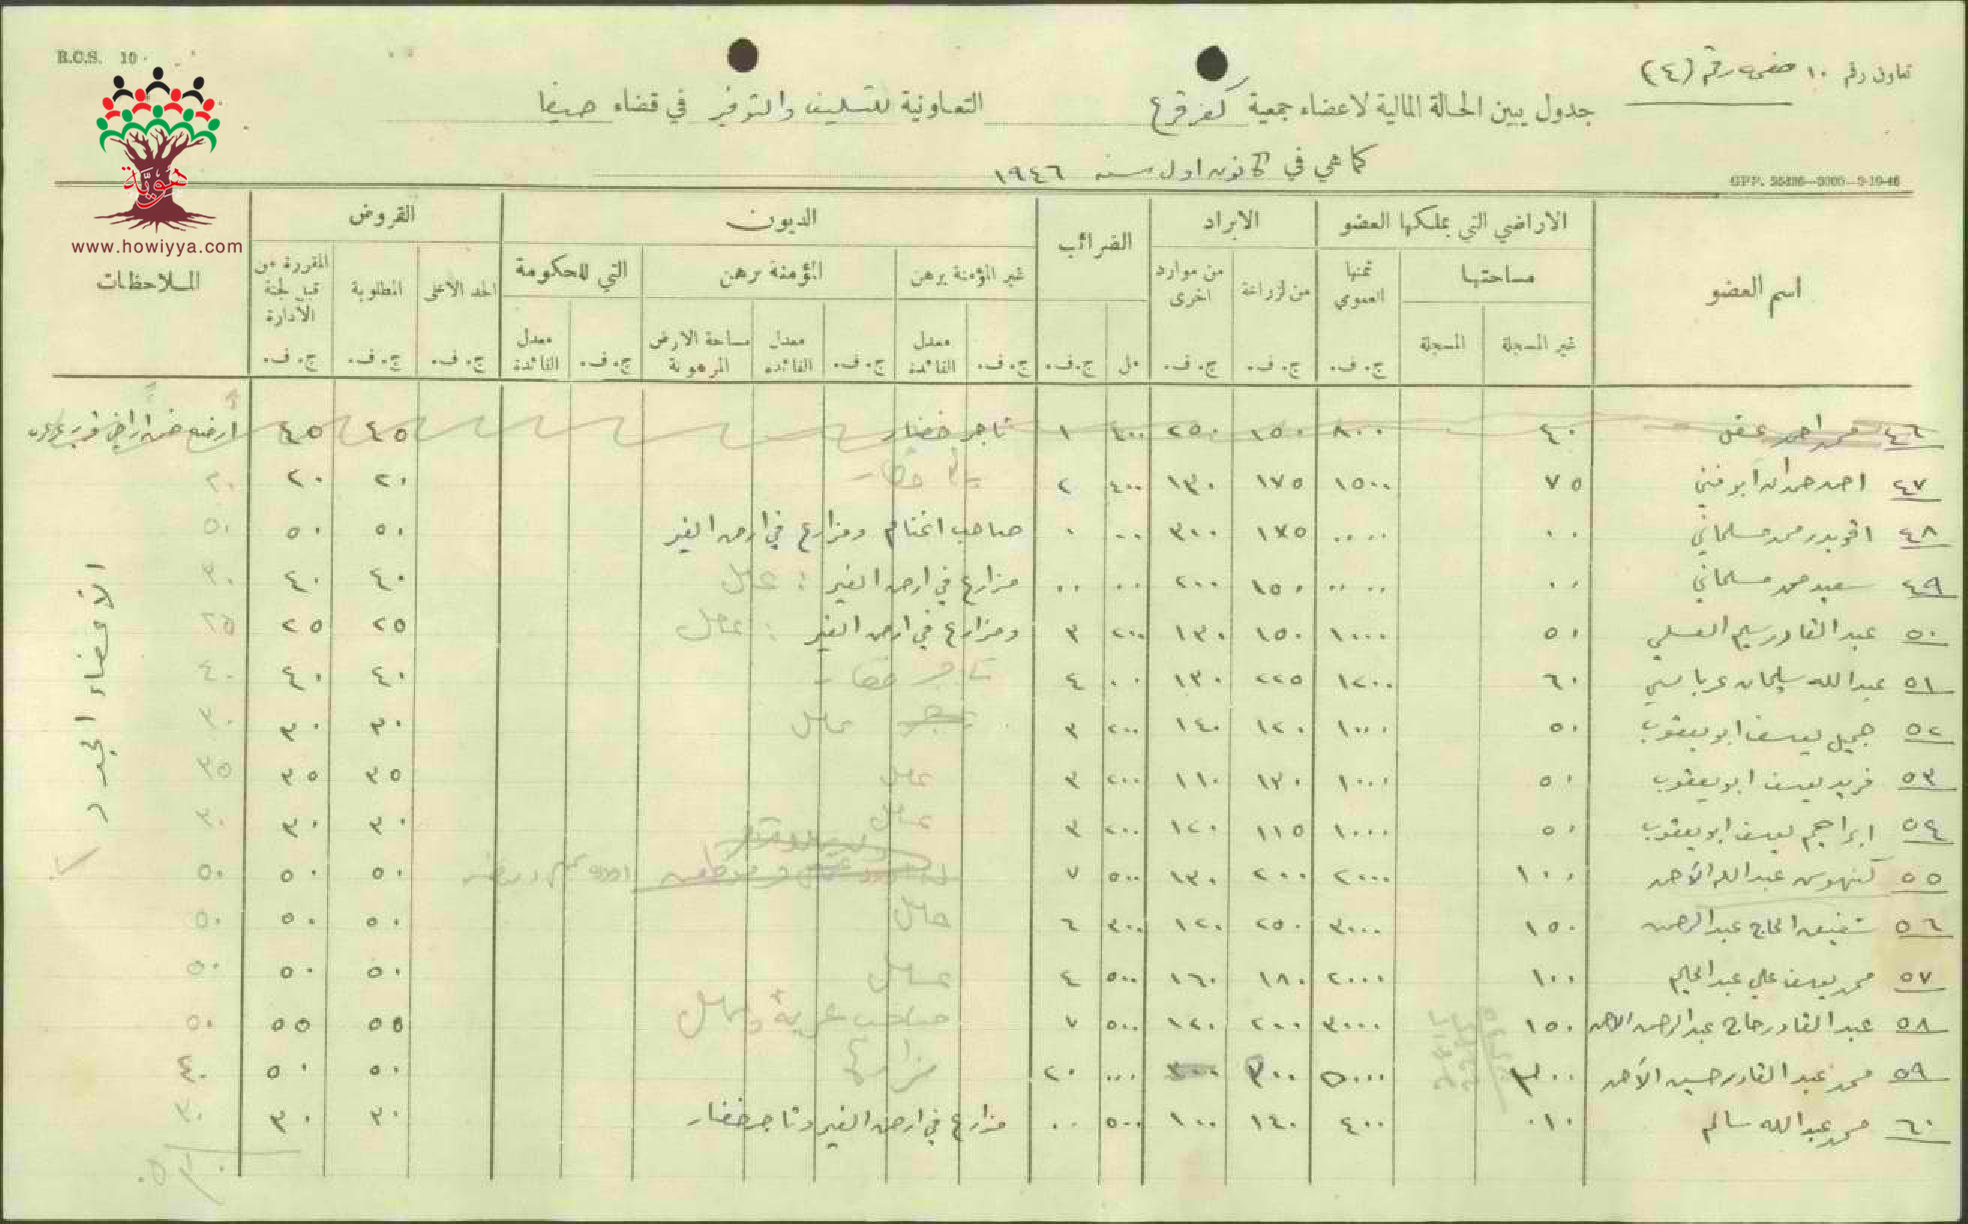 R.C.S. 10
تعاون رقم ١٠ صفحه رقم (٤)
جدول يبين الحالة المالية لاعضاء جمعية كفر قرع التعاونية للتسليف والتوفير في قضاء حيفا
كما هي في كانون اول سنة ١٩٤٦
GPP. 25486—3000—9-10-46
www.howiyya.com
هويّة
اسم العضو الاراضي التي يملكها العضو الايراد الضرائب الديون القروض الملاحظات
مساحتها ثمنها العمومي من لزراعة من موارد اخرى غير المؤمنة برهن المؤمنة برهن التي للحكومة الحد الاعلى المطلوبة المقررة من قبل لجنة الادارة
غير المسجلة المسجلة ج.ف. ج.ف. ج.ف. مل ج.ف. ج.ف. معدل الفائدة ج.ف. معدل الفائدة مساحة الارض المرهونة ج.ف. معدل الفائدة ج.ف. ج.ف. ج.ف.
٤٦ محمد احمد عقل ٤٠ ٨٠٠ ١٥٠ ٢٥٠ ٤٠٠ ١ تاجر خضار ٤٥ ٤٥
٤٧ احمد حمدان ابو فني ٧٥ ١٥٠٠ ١٧٥ ١٣٠ ٤٠٠ ٢ ٢٠ ٢٠ ٢٠
٤٨ محمد مسلماني ٠٠ ٠٠ ٠٠ ١٧٥ ٣٠٠ ٠٠ ٠ صاحب اغنام ومزارع في ارض الغير ٥٠ ٥٠ ٥٠
٤٩ سعيد محمد مسلماني ٠٠ ٠٠ ٠٠ ١٥٠ ٢٠٠ ٠٠ ٠٠ مزارع في ارض الغير : عامل ٤٠ ٤٠ ٣٠
٥٠ عبد القادر سليم العسلي ٥٠ ١٠٠٠ ١٥٠ ١٣٠ ٢٠٠ ٣ ومزارع في ارض الغير : عامل ٢٥ ٢٥ ٢٥
٥١ عبد الله سليمان عرباسي ٦٠ ١٢٠٠ ٢٢٥ ١٣٠ ٠٠ ٤ تاجر خضار ٤٠ ٤٠ ٤٠
٥٢ جميل يوسف ابو يعقوب ٥٠ ١٠٠٠ ١٢٠ ١٤٠ ٢٠٠ ٣ عامل ٣٠ ٣٠ ٣٠
٥٣ فريد يوسف ابو يعقوب ٥٠ ١٠٠٠ ١٣٠ ١١٠ ٢٠٠ ٣ عامل ٣٥ ٣٥ ٣٥
٥٤ ابراهيم يوسف ابو يعقوب ٥٠ ١٠٠٠ ١١٥ ١٢٠ ٢٠٠ ٣ عامل ٣٠ ٣٠ ٣٠
٥٥ عبد الله الأحمد ١٠٠ ٢٠٠٠ ٢٠٠ ١٣٠ ٥٠٠ ٧ ٥٠ ٥٠ ٥٠
٥٦ شفيق الحاج عبد الرحمن ١٥٠ ٣٠٠٠ ٢٥٠ ١٢٠ ٣٠٠ ٦ عامل ٥٠ ٥٠ ٥٠
٥٧ محمد يوسف علي عبد الحليم ١٠٠ ٢٠٠٠ ١٨٠ ١٦٠ ٥٠٠ ٤ عامل ٥٠ ٥٠ ٥٠
٥٨ عبد القادر حاج عبد الرحمن الاحمد ١٥٠ ٣٠٠٠ ٢٠٠ ١٢٠ ٥٠٠ ٧ صاحب عربة وعامل ٥٥ ٥٥ ٥٠
٥٩ محمد عبد القادر حسين الأحمد ٣٠٠ ٥٠٠٠ ٣٠٠ ٣٠٠ ٠٠٠ ٢٠ مزارع ٥٠ ٥٠ ٤٠
٦٠ محمد عبد الله سالم ٠١٠ ٤٠٠ ١٤٠ ١٠٠ ٥٠٠ ٠٠ مزارع في ارض الغير وتاجر خضار ٣٠ ٣٠ ٣٠
الاعضاء الجدد